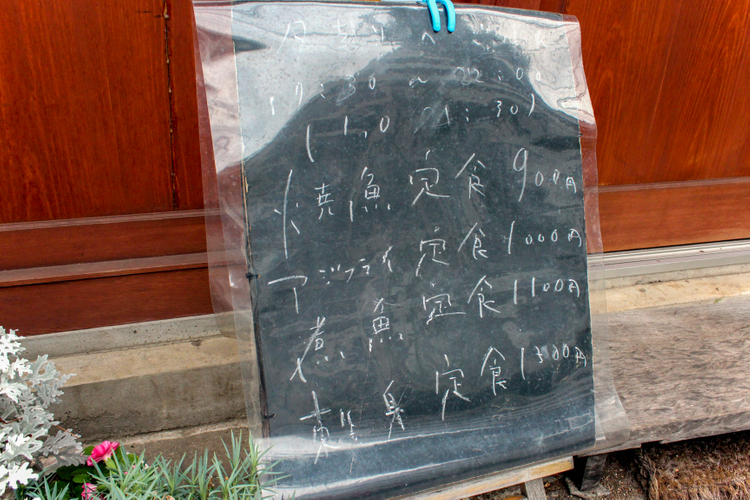 17:30〜22:00
(L.O 21:30)
焼魚定食 900円
アジフライ定食 1000円
煮魚定食 1100円
刺身定食 1300円